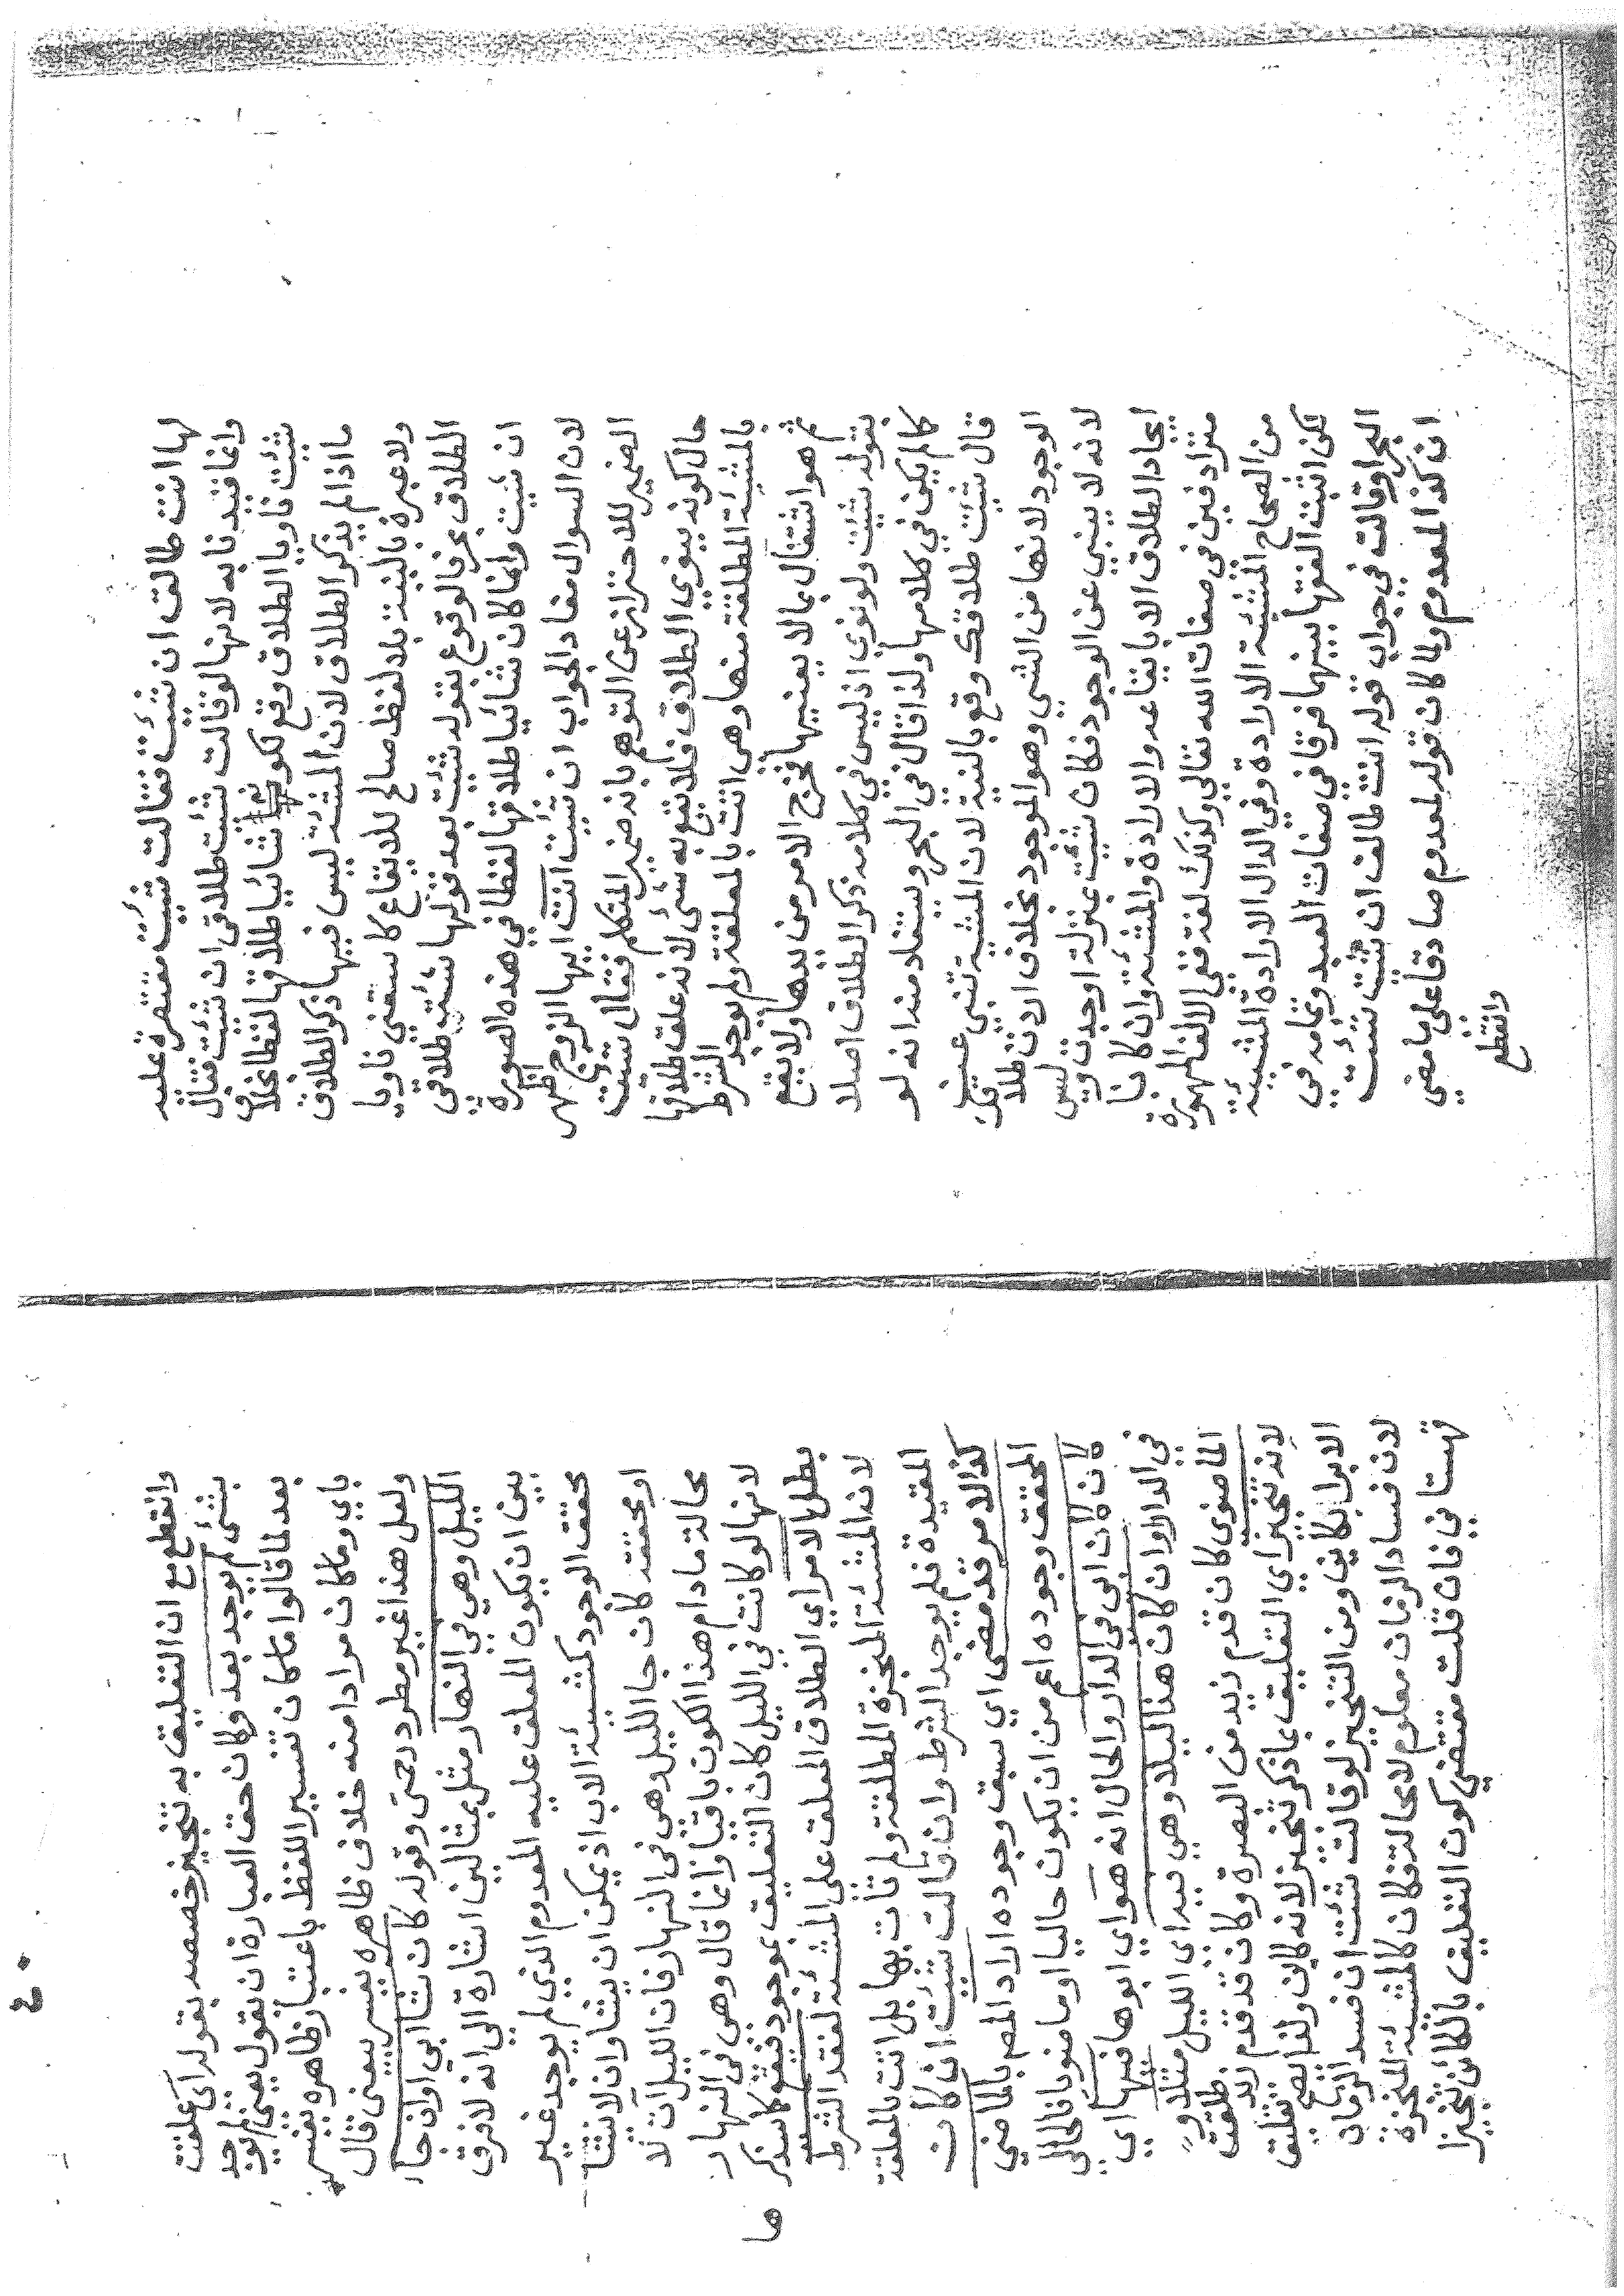 لها انت طالق ان شئت فقالت شئت مقتصرة عليه
وانما قيدنا به لانها لو قالت شئت طلاقي ان شئت فقال
شئت ناويا الطلاق وقع لكونه شائيا طلاقها لفظا بخلاف
ما اذا لم يذكر الطلاق لان المشئة ليس فيها ذكر الطلاق
ولا عبرة بالنية بلا لفظ صالح للايقاع كاسقني ناويا
الطلاق بحرفا لوقوع بقوله شئت بعد قولها شئت طلاقي
ان شئت وانما كان شائيا طلاقها لفظا في هذه الصورة
لان السوال معاد الجواب ان شئت انت ايها الزوج اظهر
الضمير للاحتراز عن التوهم بانه ضمير المتكلم فقال شئت
حال كونه ينوي الطلاق فلا يقع به شئ لانه علق طلاقها
بالمشئة المطلقة منها وهي اتت بالمعلقة ولم يوجد الشرط
ثم هو اشتغال بما لا يعنيها فخرج الامر من يدها ولا يقع
بقوله شئت ولو نوي اذ ليس في كلامه ذكر الطلاق اصلا
كما لم يكن في كلامها ولذا قال في البحر ويستفاد منه انه لو
قال شئت طلاقك وقع بالنية لان المشية تنبي عن
الوجود لانها من الشي وهو الموجود بخلاف اردت طلاقك
لانه لا ينبي عن الوجود فكان شئت بمنزلة اوجدت وليس
ايجاد الطلاق الا بايقاعه والارادة والمشئة وان كانا
مترادفين في صفات الله تعالي وكذلك لغة ففي الالف المهموزة
من الصحاح المشيئة الارادة وفي الدال الارادة المشيئة
لكن اثبت الفقها بينهما فرقا في صفات العبد وتمامه في
البحر او قالت في جواب قوله انت طالق ان شئت شئت
ان كذا لمعدوم ولما كان قوله لمعدوم صادقا علي ما مضي
وانقطع
وانقطع مع ان التعليق به تنجيز خصصه بقوله اي علقت
بشئ لم يوجد بعد وكان حق العبارة ان تقول يعني لم يوجد
بعد لما قالوا ما كان تفسيرا للفظ باعتبار ظاهره يفسر
باي وما كان مرادا منه خلاف ظاهره يفسر بيعني قال
ولعل هذا غير مطرد رحمتي وقوله كان شا ابي او ان جا
الليل وهي في النهار مثل بمثالين اشارة الي انه لا فرق
بين ان يكون المعلق عليه المعدوم الذي لم يوجد غير
محقق الوجود كمشيئة الاب اذ يمكن ان يشا وان لا يشا
او محققه كان جا الليل وهي في النهار فان الليل آت لا
محالة ما دام هذا الكون باقيا وانما قال وهي في النهار
لانها لو كانت في الليل كان التعليق بموجود فيقع كما سيذكر
بطل الامر اي الطلاق المعلق علي المشئة لفقد الشرط
لانه المشئة المنجزة المطلقة ولم تات بها بل اتت بالمعلقة
المقيدة فلم يوجد الشرط وان قالت شئت ان كان
كذا لامر قد مضي اي سبق وجوده اراد المص بالماضي
المحقق وجوده اعم من ان يكون حاليا او ماضويا فالحالي
كان كان ابي في الدار والحال انه هو اي ابوها فيها اي
في الدار او ان كان هذا ليلا وهي فيه اي الليل مثلا و
الماضوي كان قدم زيد من البصرة وكان قد قدم زيد طلقت
لانه تنجيز اي التعليق بما ذكر تنجيز لانه كاين ولذا يصح تعليق
الابرا بكاين ومن التنجيز لو قالت شئت ان فسد الزمان
لان فساد الزمان معلوم لا محالة فكان كالمشيئة المنجزة
قهستاني فان قلت مقتضي كون التعليق بالكائن تنجيزا
ها
٤٠